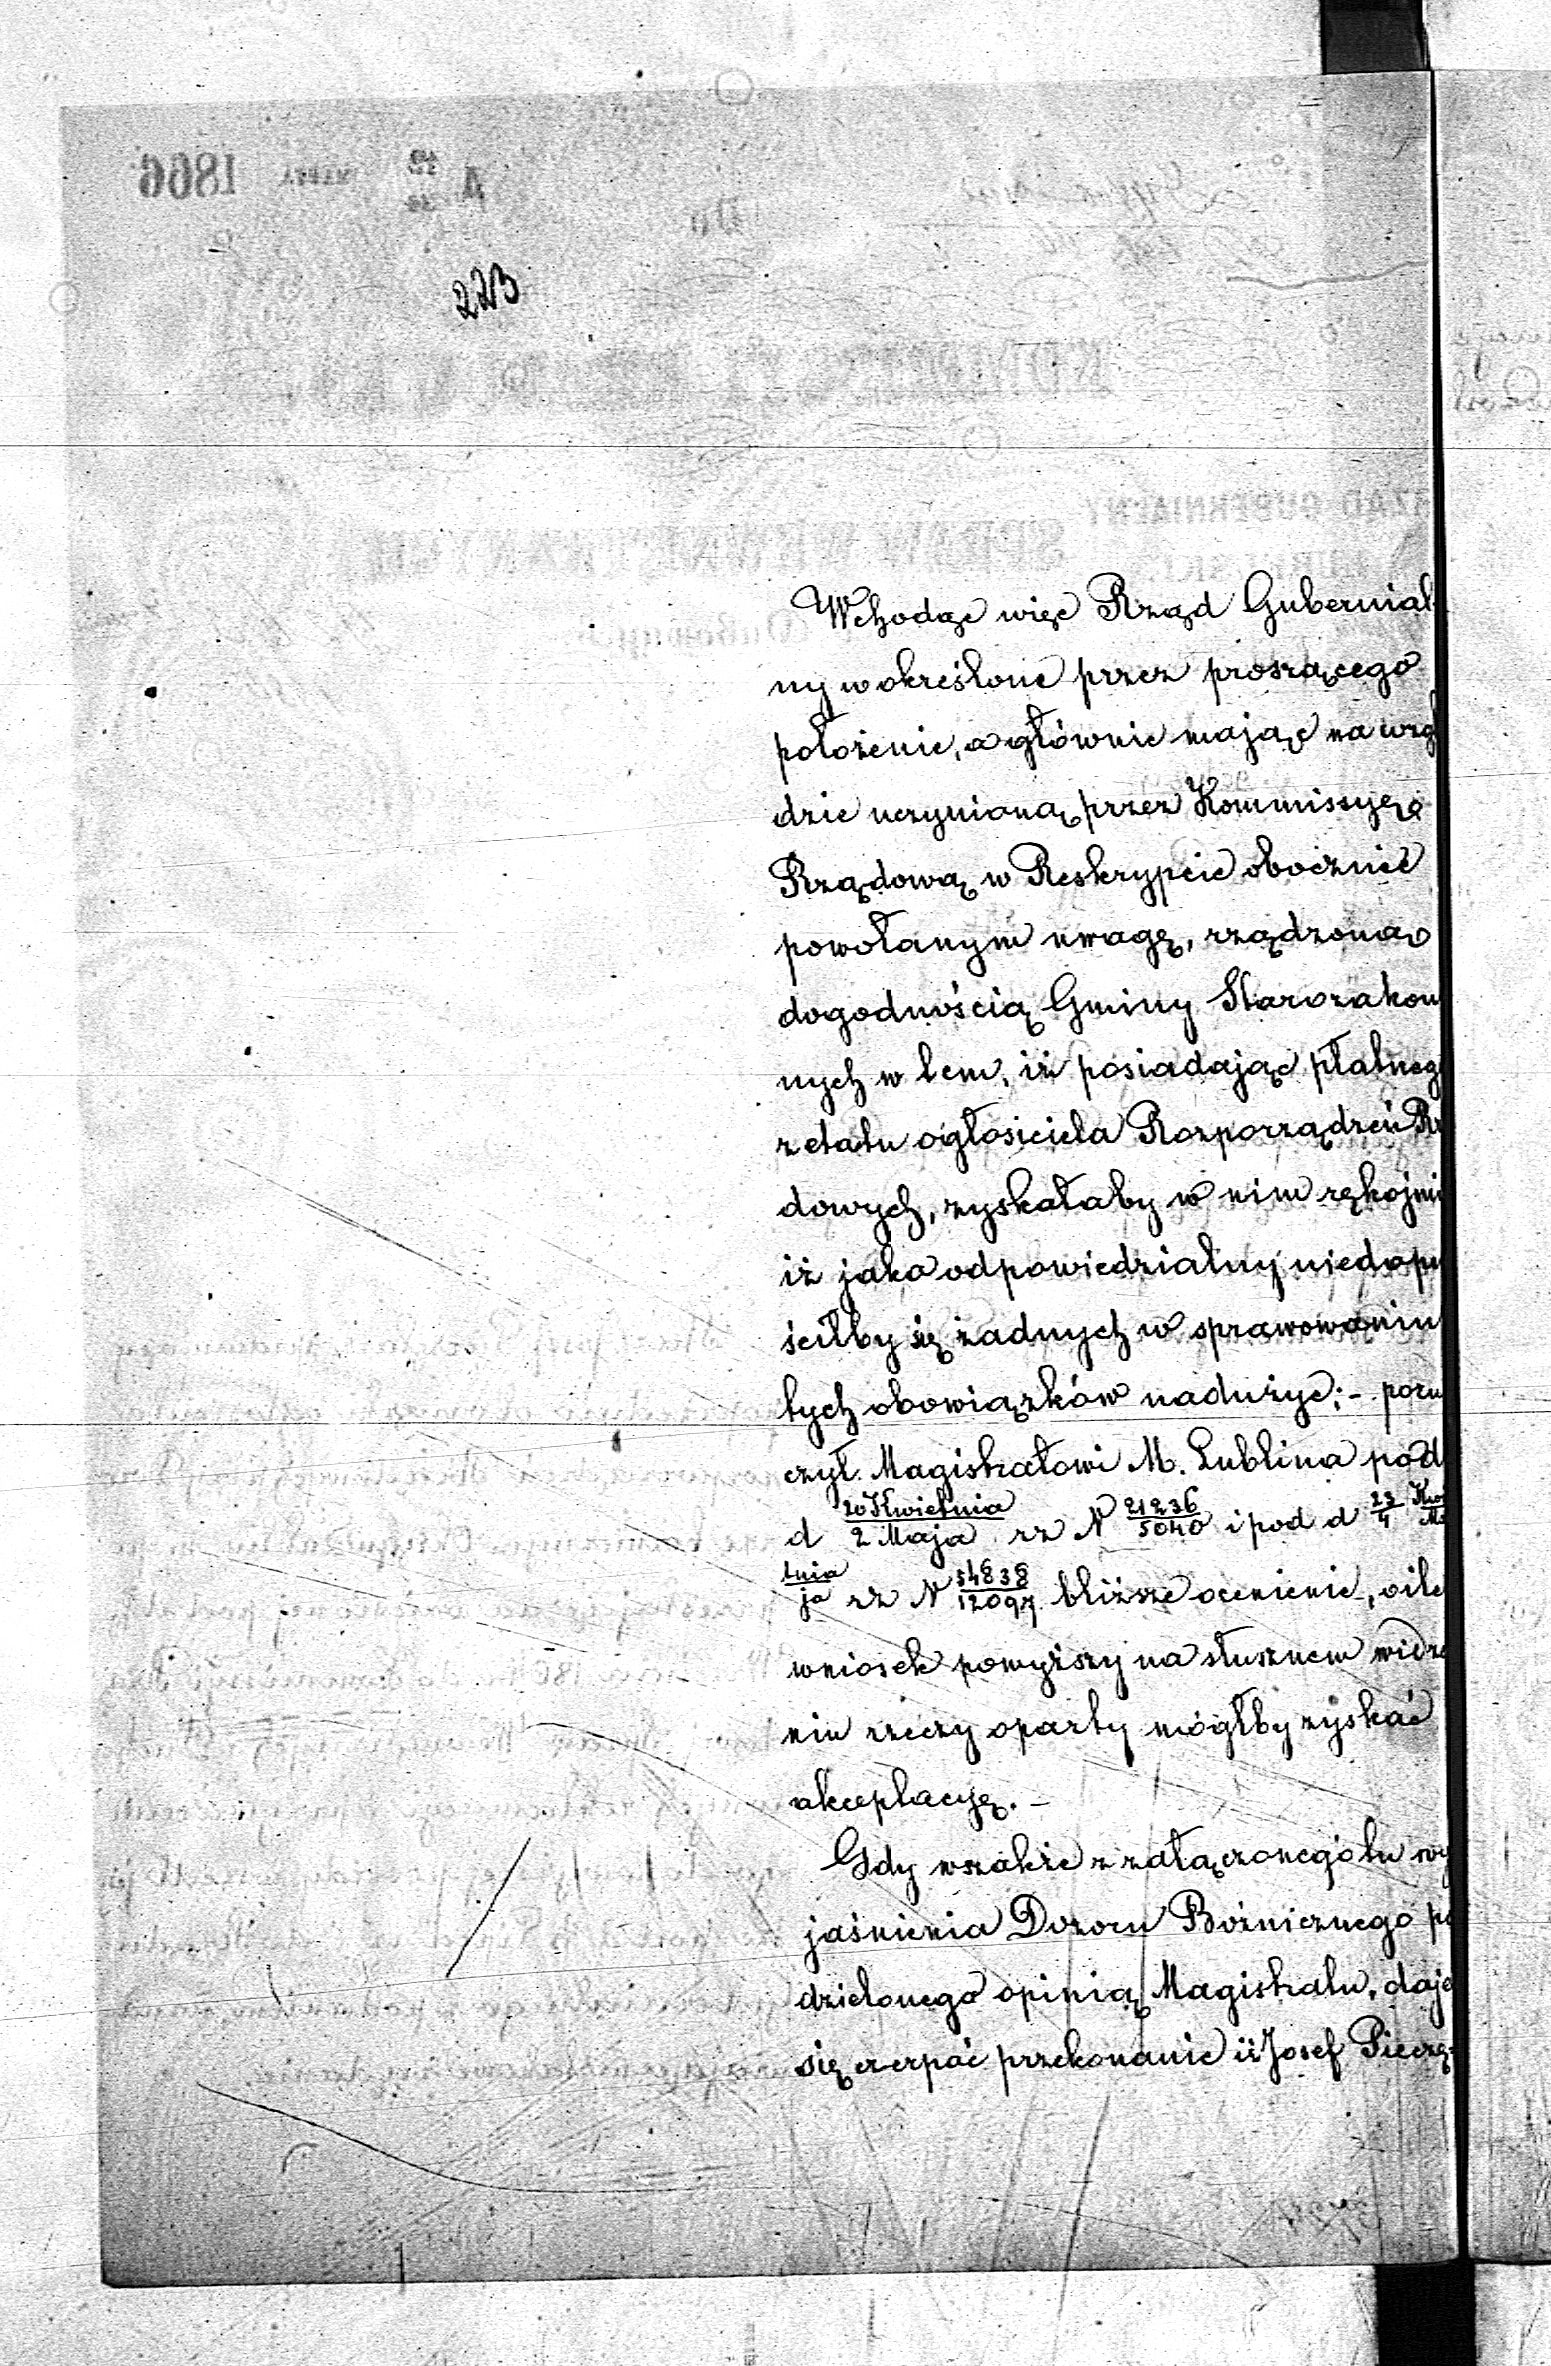 223
Wchodząc więc Rząd Gubernial-
ny w określone przez proszącego
położenie, a głównie mając na wzglę
dzie uczynioną przez Kommissyę
Rządową w Reskrypcie obocznie
powołanym uwagę, rządzoną
dogodnością Gminy Starozakon
nych w tem, iż posiadając płatneg
z etatu ogłosiciela Rozporządzeń Rz
dowych, zyskałaby w nim rękojmi
iż jako odpowiedzialny niedopu
ściłby się żadnych w sprawowaniu
tych obowiązków nadużyć; - poru
czył Magistratowi M. Lublina pod
d 20 Kwietnia / 2 Maja rz N 21236 / 5040 i pod d 23 / 4 Kwi / Ma
tnia / ja rz N 54838 / 12097 bliższe ocenienie, o ile
wniosek powyższy na słusznem widze
niu rzeczy oparty mógłby zyskać
akceptacyę. -
Gdy wszakże z załączonego tu wy
jaśnienia Dozoru Bożnicznego po
dzielonego opinią Magistratu, daje
się czerpać przekonanie iż Josef Pieczę-